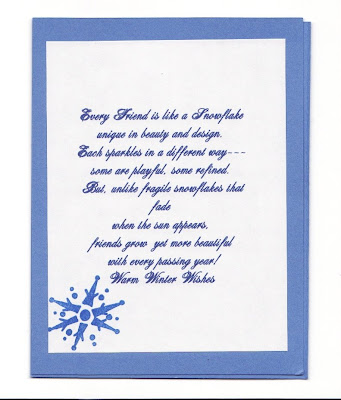 Every Friend is like a Snowflake
unique in beauty and design.
Each sparkles in a different way---
some are playful, some refined.
But, unlike fragile snowflakes that
fade
when the sun appears,
friends grow yet more beautiful
with every passing year!
Warm Winter Wishes